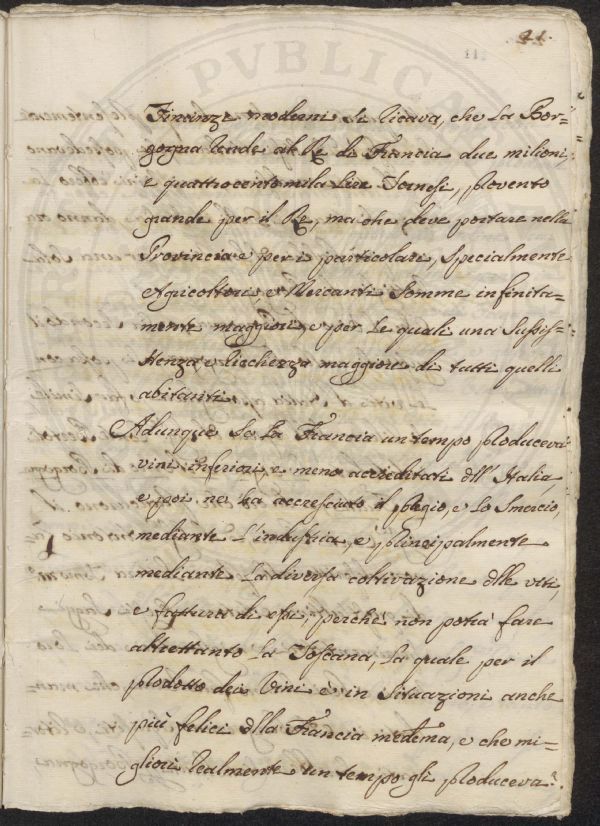 21.
PVBLICA
Finanze moderni si ricava, che la Bor-
gogna rende al Re di Francia due milioni,
e quattrocento mila Lire Tornesi, provento
grande per il Re, ma che deve portare nella
Provincia e per i particolari, specialmente
Agricoltori, e Mercanti somme infinita-
mente maggiori, e per le quali una sussis-
tenza e ricchezza maggiore di tutti quelli
abitanti.
Adunque se la Francia un tempo produceva
vini inferiori, e meno accreditati dll' Italia,
e poi ne ha accresciuto il pregio, e lo smercio,
mediante l'industria, e principalmente
mediante la diversa coltivazione dlle viti,
e fattura di essi, perche non potrà fare
altrettanto la Toscana, la quale per il
prodotto dei vini è in situazioni anche
più felici dlla Francia medema, e che mi-
gliori realmente un tempo gli produceva?